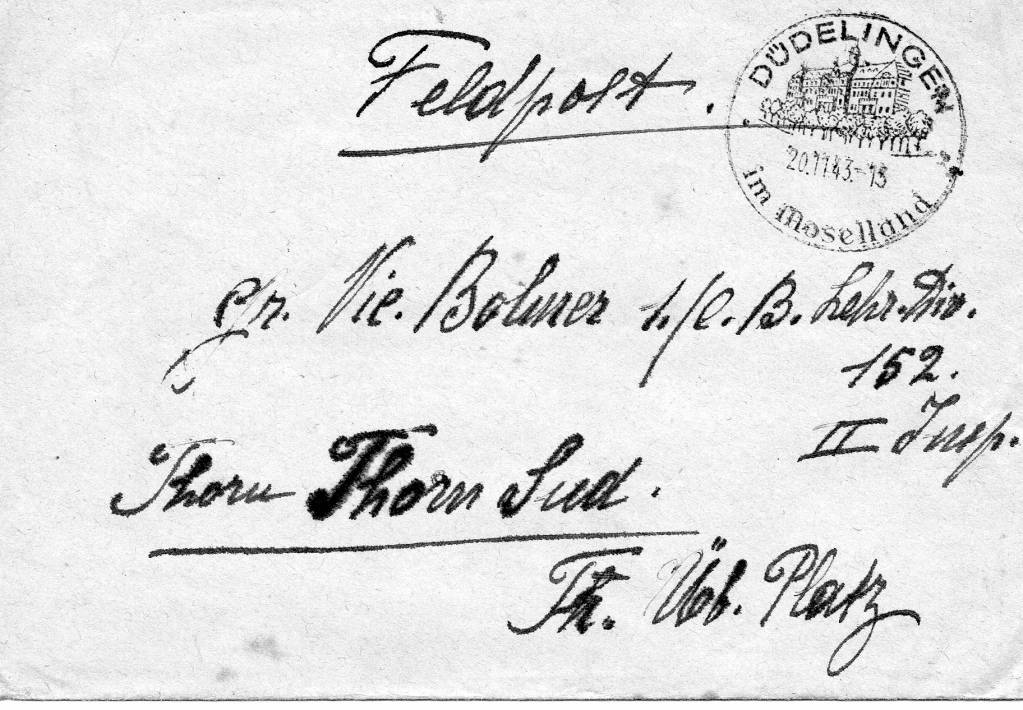 Feldpost.
DÜDELINGEN
20.11.43.-13
im Moselland
Gfr. Vic. Bohner 1./C. B. Lehr. Div.
152.
II Insp.
Thorn Thorn Sud.
Th. Üb. Platz